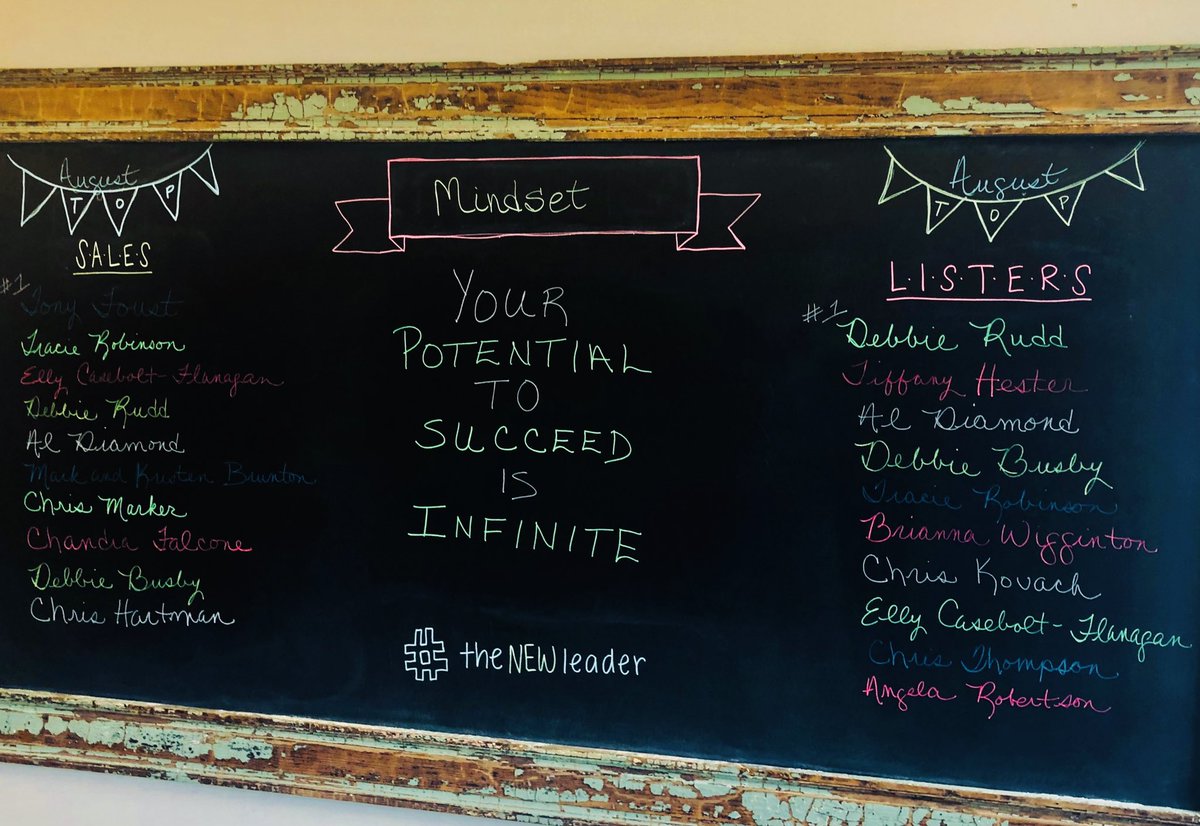 August
TOP
S.A.L.E.S
#1
Tony Foust
Tracie Robinson
Elly Casebolt-Flanagan
Debbie Rudd
Al Diamond
Mark and Kristen Brunton
Chris Marker
Chandra Falcone
Debbie Busby
Chris Hartman
Mindset
YOUR
POTENTIAL
TO
SUCCEED
IS
INFINITE
#theNEWleader
August
TOP
L.I.S.T.E.R.S
#1 Debbie Rudd
Tiffany Hester
Al Diamond
Debbie Busby
Tracie Robinson
Brianna Wigginton
Chris Kovach
Elly Casebolt-Flanagan
Chris Thompson
Angela Robertson